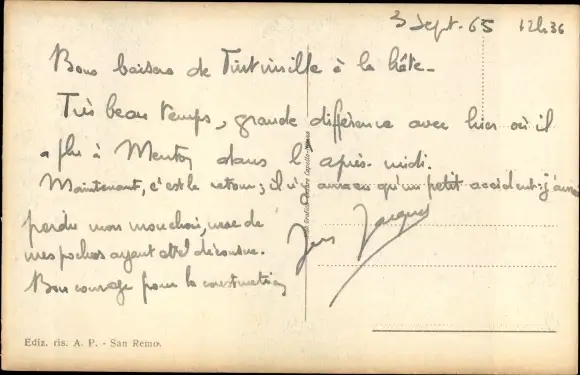 3 Sept. 65 12h36
Bons baisers de à la hâte.
Très beau temps, grande différence avec hier où il
a plu à Menton dans l'après-midi.
Maintenant, c'est le retour ; il n'y qu'un petit accident : j'avais
perdu mon mouchoir, une de
mes poches ayant été décousue.
Bon courage pour la construction
Jean Jacques
Ediz. ris. A. P. - San Remo.